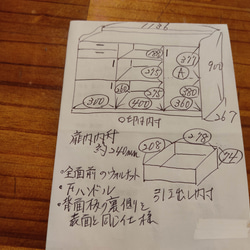 1136
277
275
275
A
900
260
280
300
400
360
267
内寸
扉内内寸
約240mm
208
278
74
引出し内寸
・全面前つウォルナット
・戸ハンドル
・背面板の裏側を
表面と同じ仕様